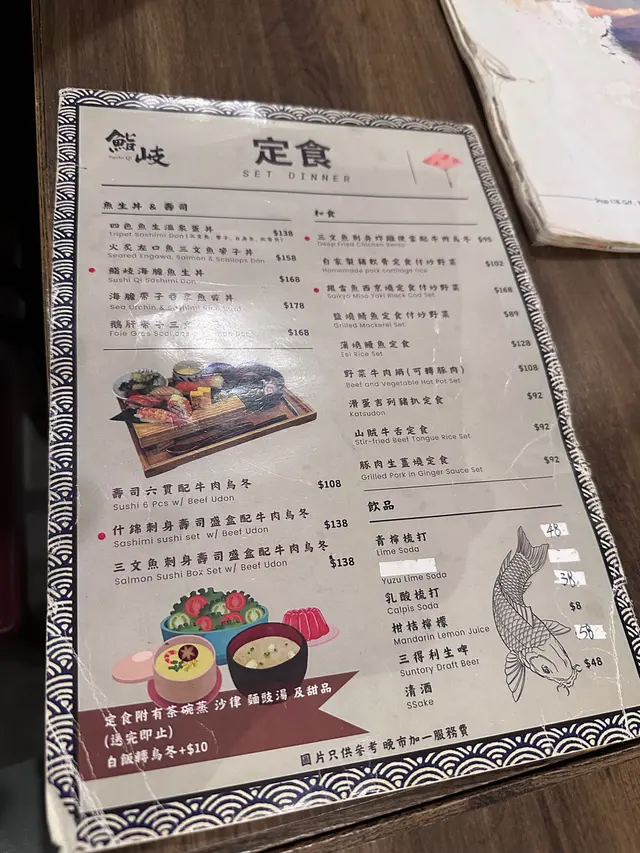 鮨岐
Sushi Qi
定食
SET DINNER
魚生丼 & 壽司
四色魚生溫泉蛋丼
$138
火炙左口魚三文魚帶子丼
Seared Engawa, Salmon & Scallops Don
$158
鮨岐海膽魚生丼
Sushi Qi Sashimi Don
$168
海膽帶子
Sea Urchin &
$178
鵝肝帶子三文
Foie Gras
$168
壽司六貫配牛肉烏冬
Sushi 6 Pcs w/ Beef Udon
$108
什錦刺身壽司盛盒配牛肉烏冬
Sashimi sushi set w/ Beef Udon
$138
三文魚刺身壽司盛盒配牛肉烏冬
Salmon Sushi Box Set w/ Beef Udon
$138
定食附有茶碗蒸 沙律 麵豉湯 及甜品
(送完即止)
白飯轉烏冬+$10
和食
三文魚刺身炸雞便當配牛肉烏冬 $95
Deep Fried Chicken Bento
自家製豬軟骨定食付炒野菜
Homemade pork cartilage rice
$102
銀雪魚西京燒定食付炒野菜
Saikyo Miso Yaki Black Cod Set
$168
鹽燒鯖魚定食付炒野菜
Grilled Mackerel Set
$89
蒲燒鰻魚定食
Eel Rice Set
$128
野菜牛肉鍋(可轉豚肉)
Beef and Vegetable Hot Pot Set
$108
滑蛋吉列豬扒定食
Katsudon
$92
山賊牛舌定食
Stir-fried Beef Tongue Rice Set
$92
豚肉生薑燒定食
Grilled Pork in Ginger Sauce Set
$92
飲品
青檸梳打
Lime Soda
48
Yuzu Lime Soda
乳酸梳打
Calpis Soda
38
柑桔檸檬
Mandarin Lemon Juice
$8
三得利生啤
Suntory Draft Beer
58
清酒
SSake
$48
圖片只供參考 晚市加一服務費